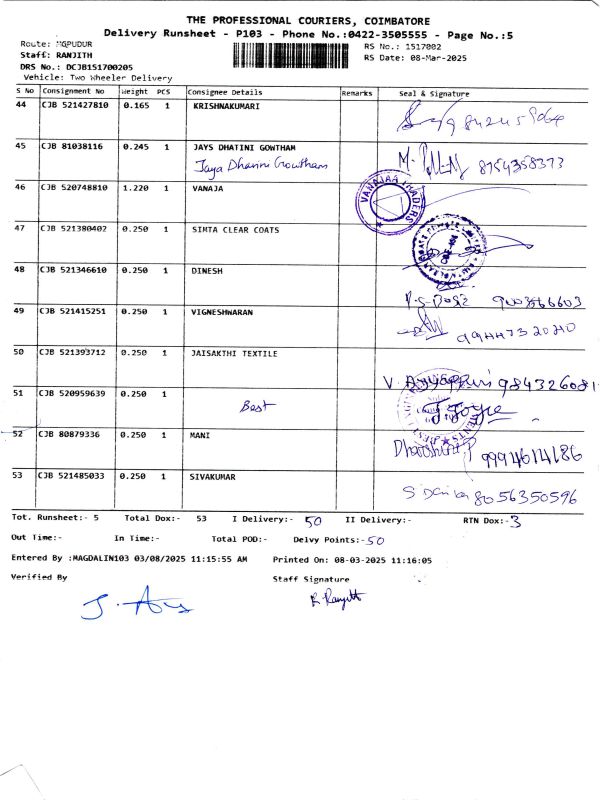 THE PROFESSIONAL COURIERS, COIMBATORE
Delivery Runsheet - P103 - Phone No.:0422-3505555 - Page No.:5
Route: MGPUDUR RS No.: 1517002
Staff: RANJITH RS Date: 08-Mar-2025
DRS No.: DCJB151700205
Vehicle: Two Wheeler Delivery
S No Consignment No Weight PCS Consignee Details Remarks Seal & Signature
44 CJB 521427810 0.165 1 KRISHNAKUMARI
45 CJB 81038116 0.245 1 JAYS DHATINI GOWTHAM
Jaya Dharini Gowtham 8754358373
46 CJB 520748810 1.220 1 VANAJA VANAJAA TRADERS
47 CJB 521380402 0.250 1 SIMTA CLEAR COATS
48 CJB 521346610 0.250 1 DINESH
9003566603
49 CJB 521415251 0.250 1 VIGNESHWARAN
9944732020
50 CJB 521393712 0.250 1 JAISAKTHI TEXTILE
V. 984326081
51 CJB 520959639 0.250 1
Best
52 CJB 80879336 0.250 1 MANI
9994614186
53 CJB 521485033 0.250 1 SIVAKUMAR
8056350596
Tot. Runsheet:- 5 Total Dox:- 53 I Delivery:- 50 II Delivery:- RTN Dox:- 3
Out Time:- In Time:- Total POD:- Delvy Points:- 50
Entered By :MAGDALIN103 03/08/2025 11:15:55 AM Printed On: 08-03-2025 11:16:05
Verified By Staff Signature
R. Ranjith